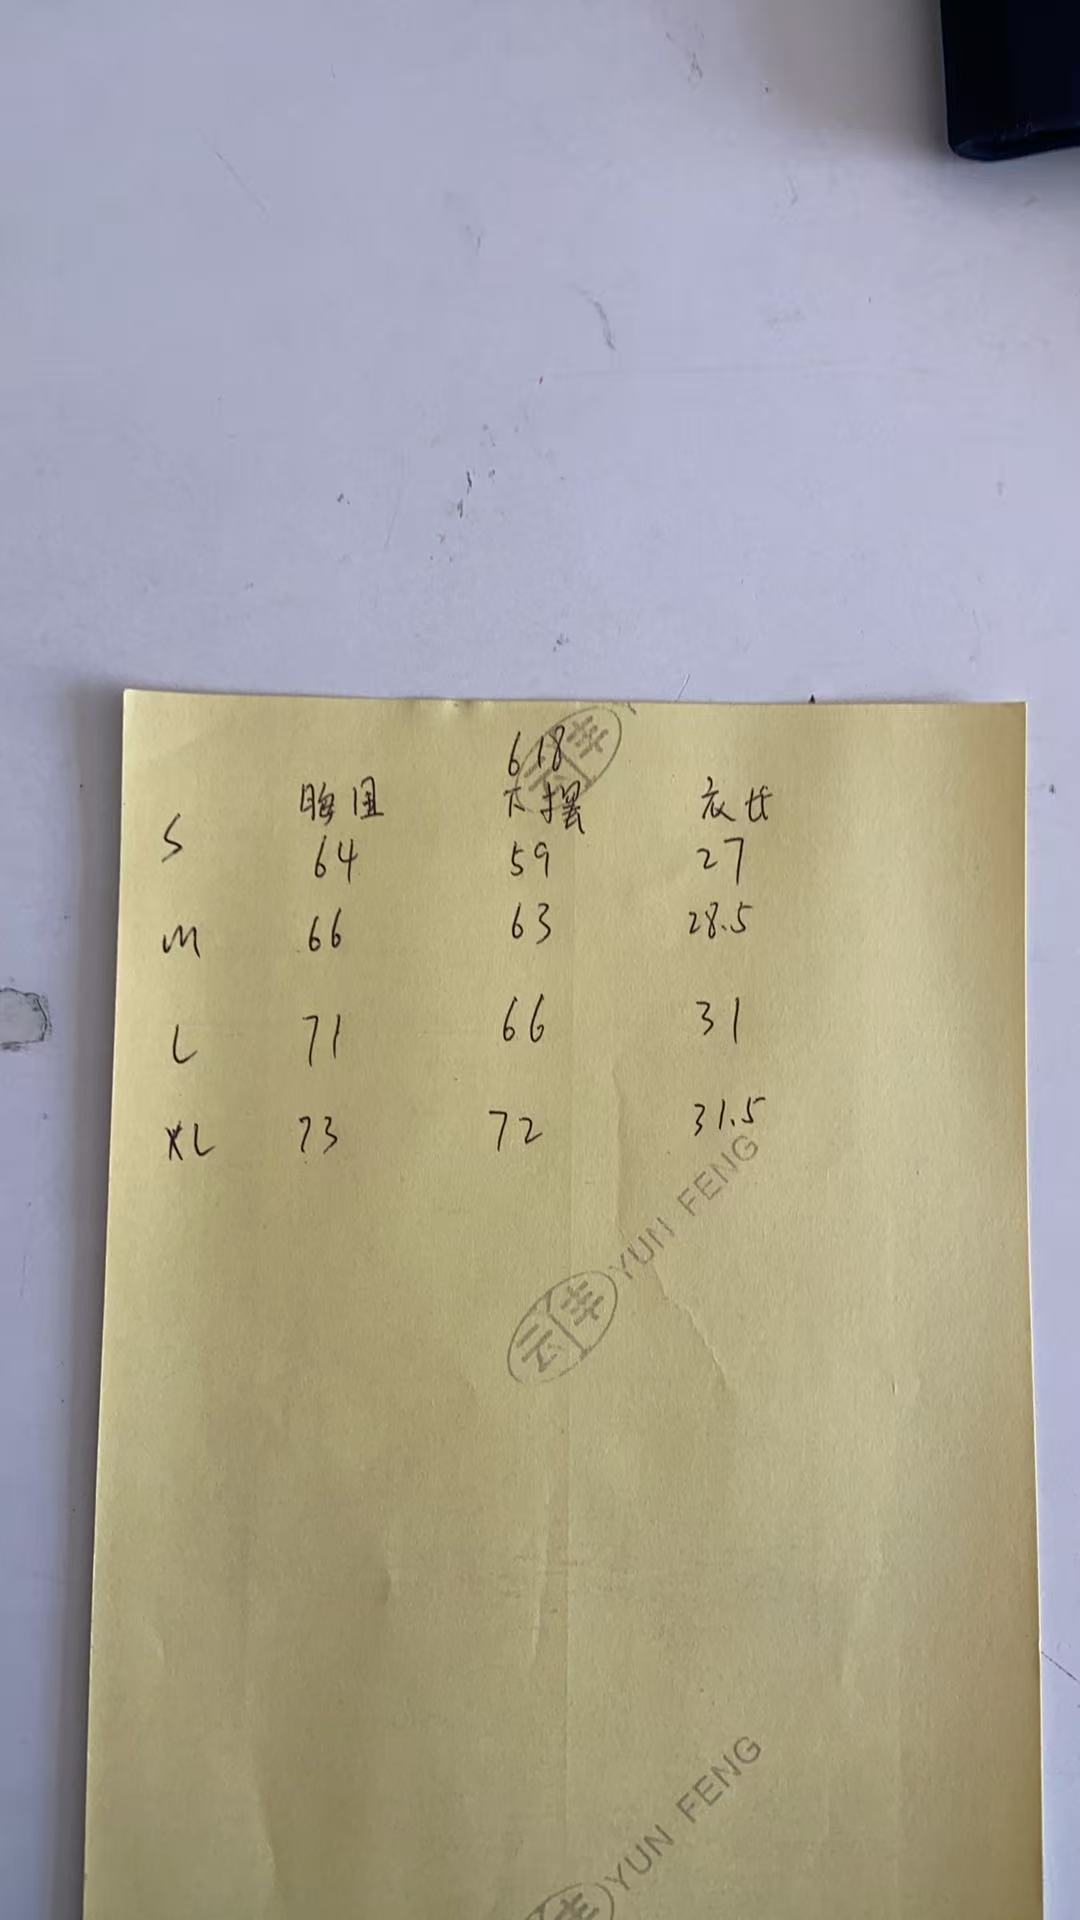 618
胸围 下摆 衣长
S 64 59 27
M 66 63 28.5
L 71 66 31
XL 73 72 31.5
云丰
YUN FENG
云丰
YUN FENG
丰